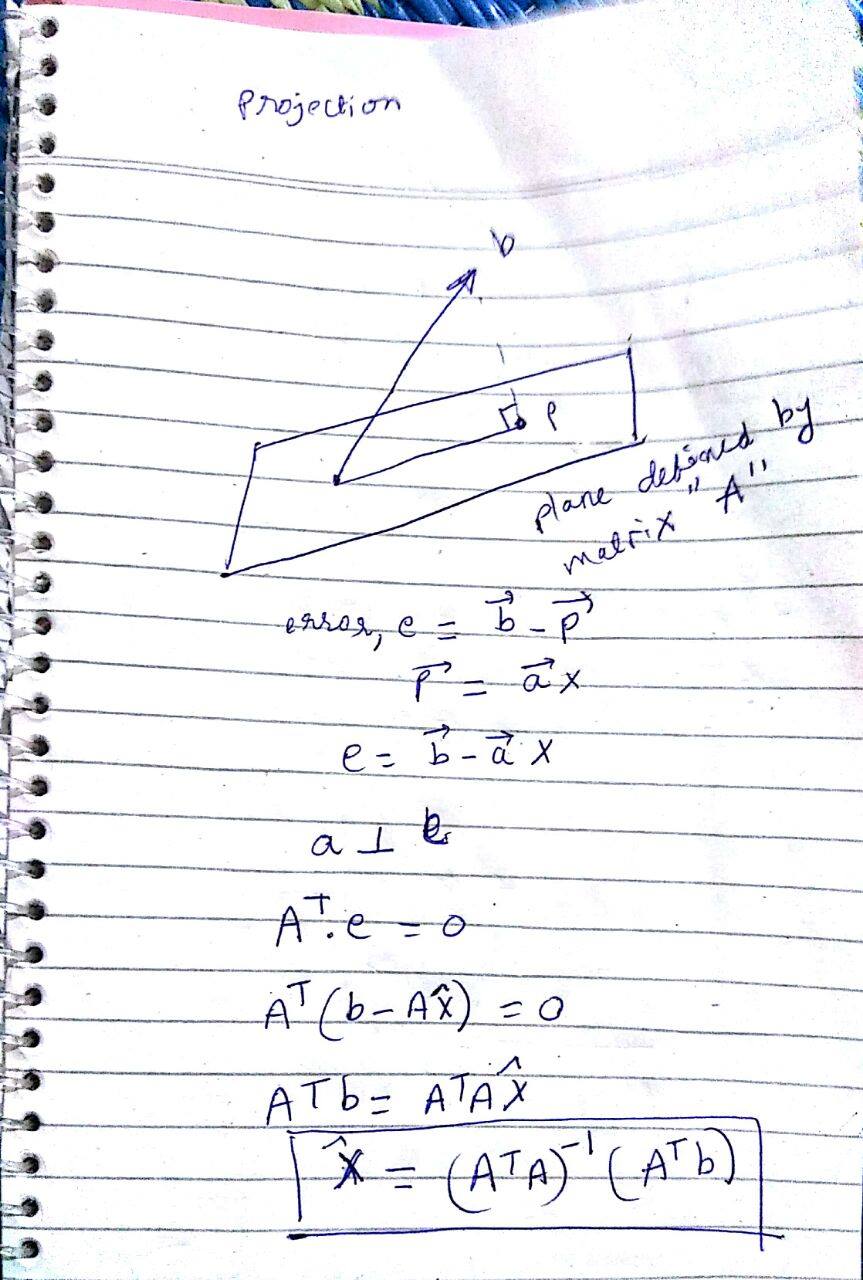 Projection
b
p
plane defined by
matrix "A"
error, e = b⃗ - p⃗
p⃗ = a⃗ x
e = b⃗ - a⃗ x
a ⊥ e
Aᵀ. e = 0
Aᵀ(b - Ax̂) = 0
Aᵀb = AᵀAx̂
x̂ = (AᵀA)⁻¹ (Aᵀb)